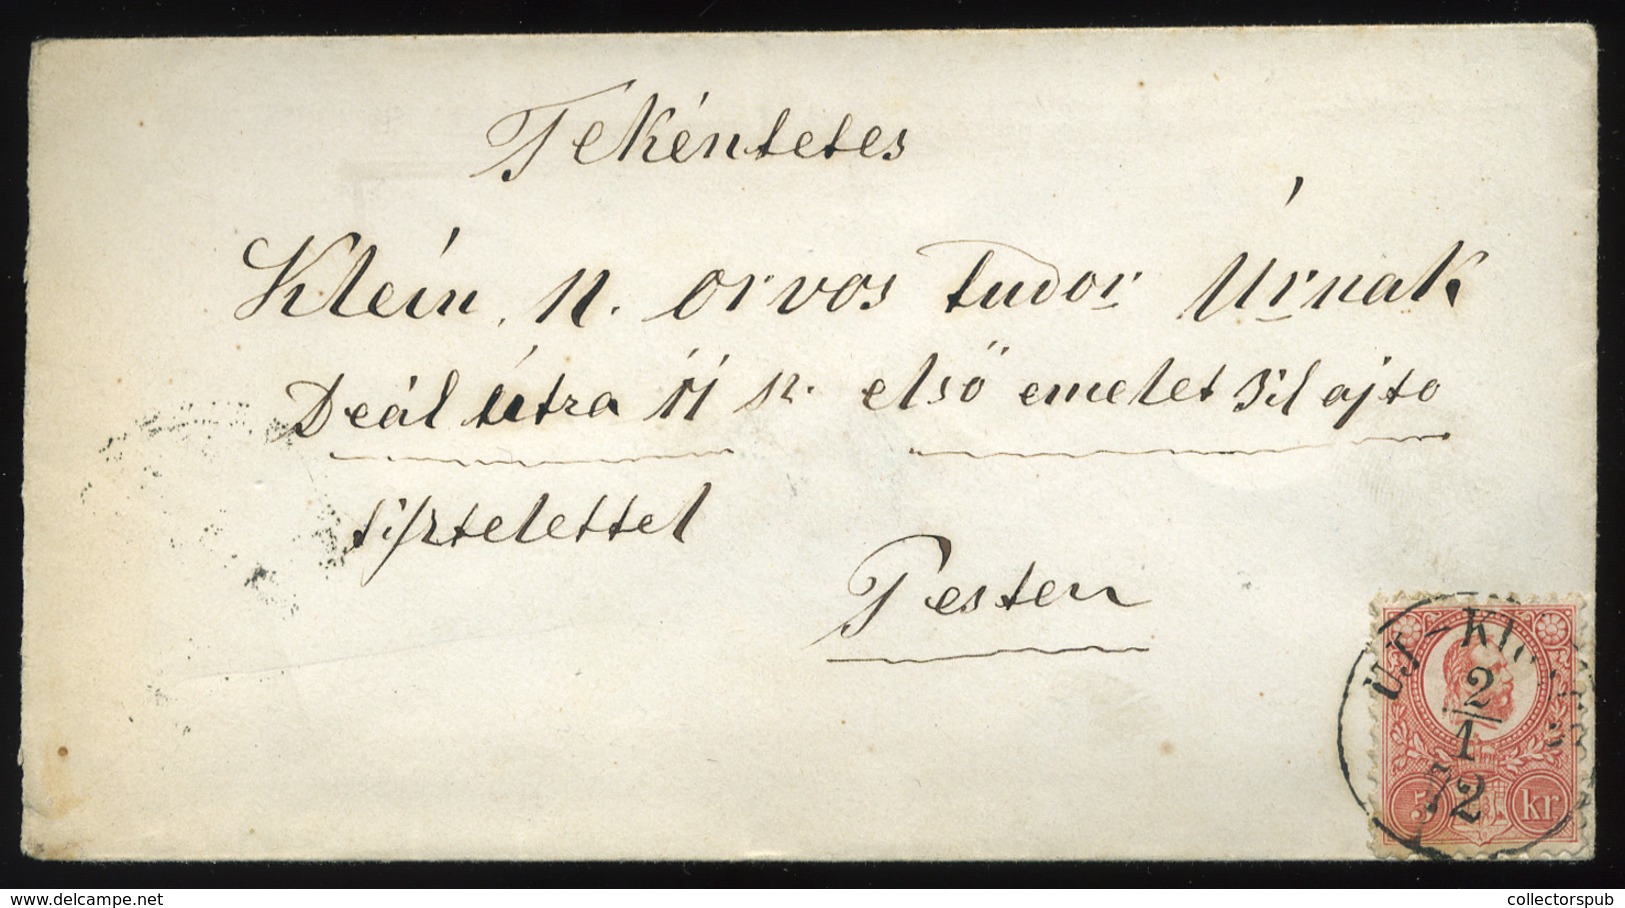 Tekéntetes
Klein. N. orvos tudor Úrnak
Deál útra 11 sz. első emelet 3il ajto
tisztelettel
Pesten
UJ-KI
2
1
72
5 kr
www.delcampe.net
collectorspub